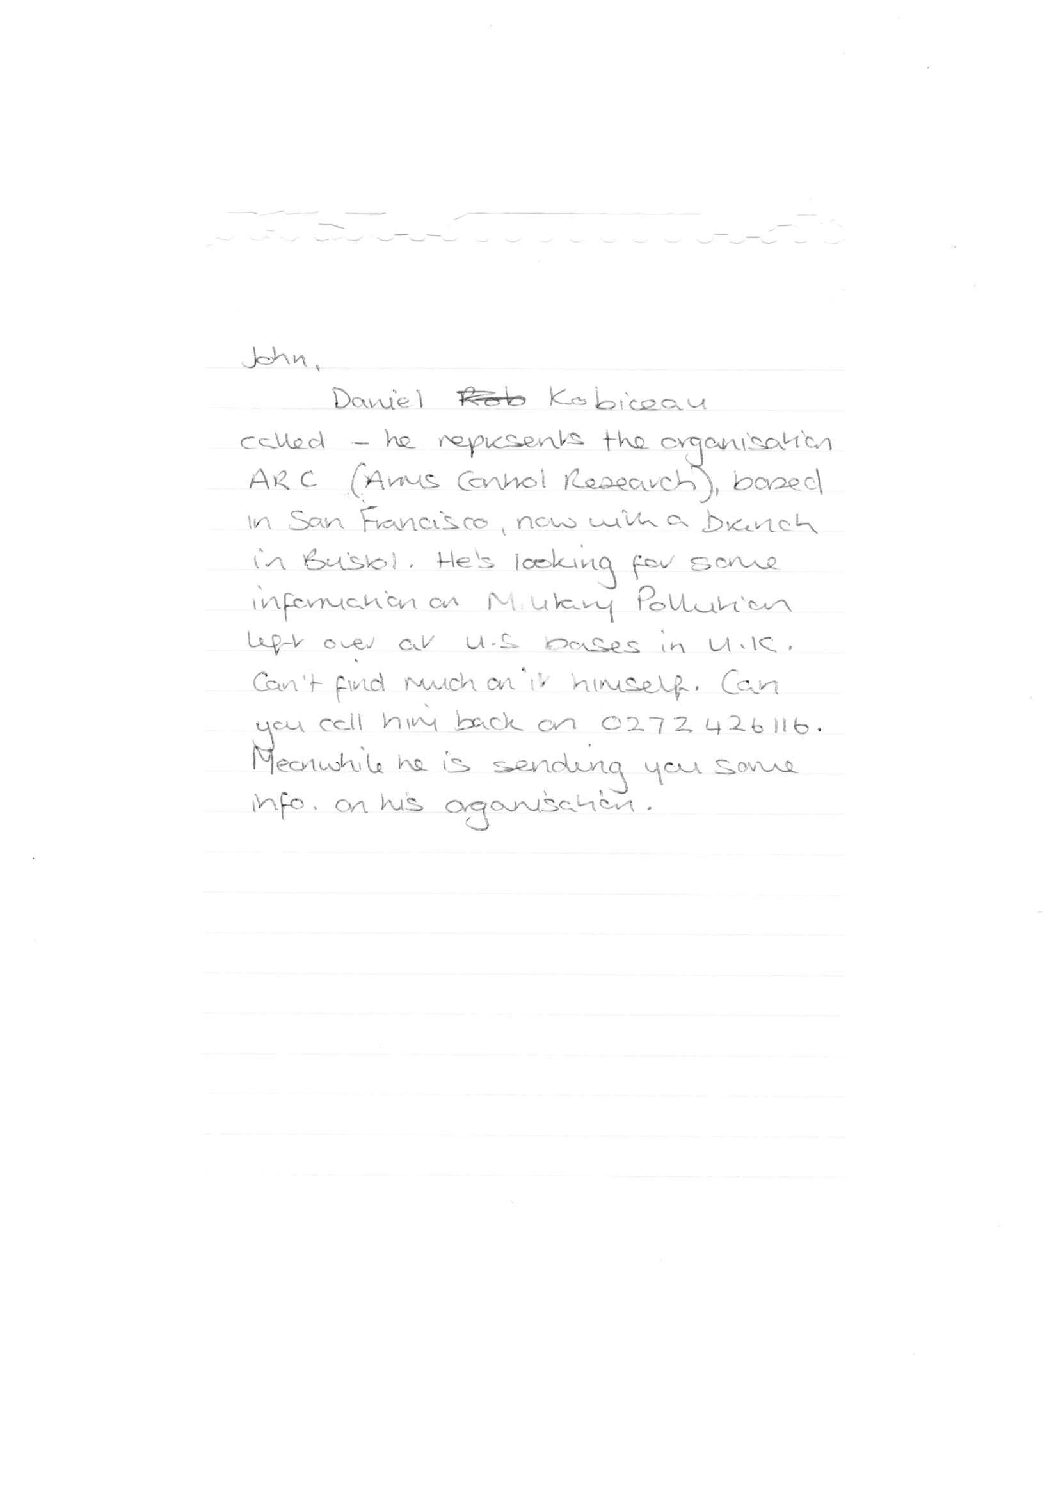 John,
Daniel Rob Kobiceau
called - he represents the organisation
ARC (Arms Control Research), based
in San Francisco, now with a branch
in Bristol. He's looking for some
information on Military Pollution
left over at U.S bases in U.K.
Can't find much on it himself. Can
you call him back on 0272 426116.
Meanwhile he is sending you some
info. on his organisation.